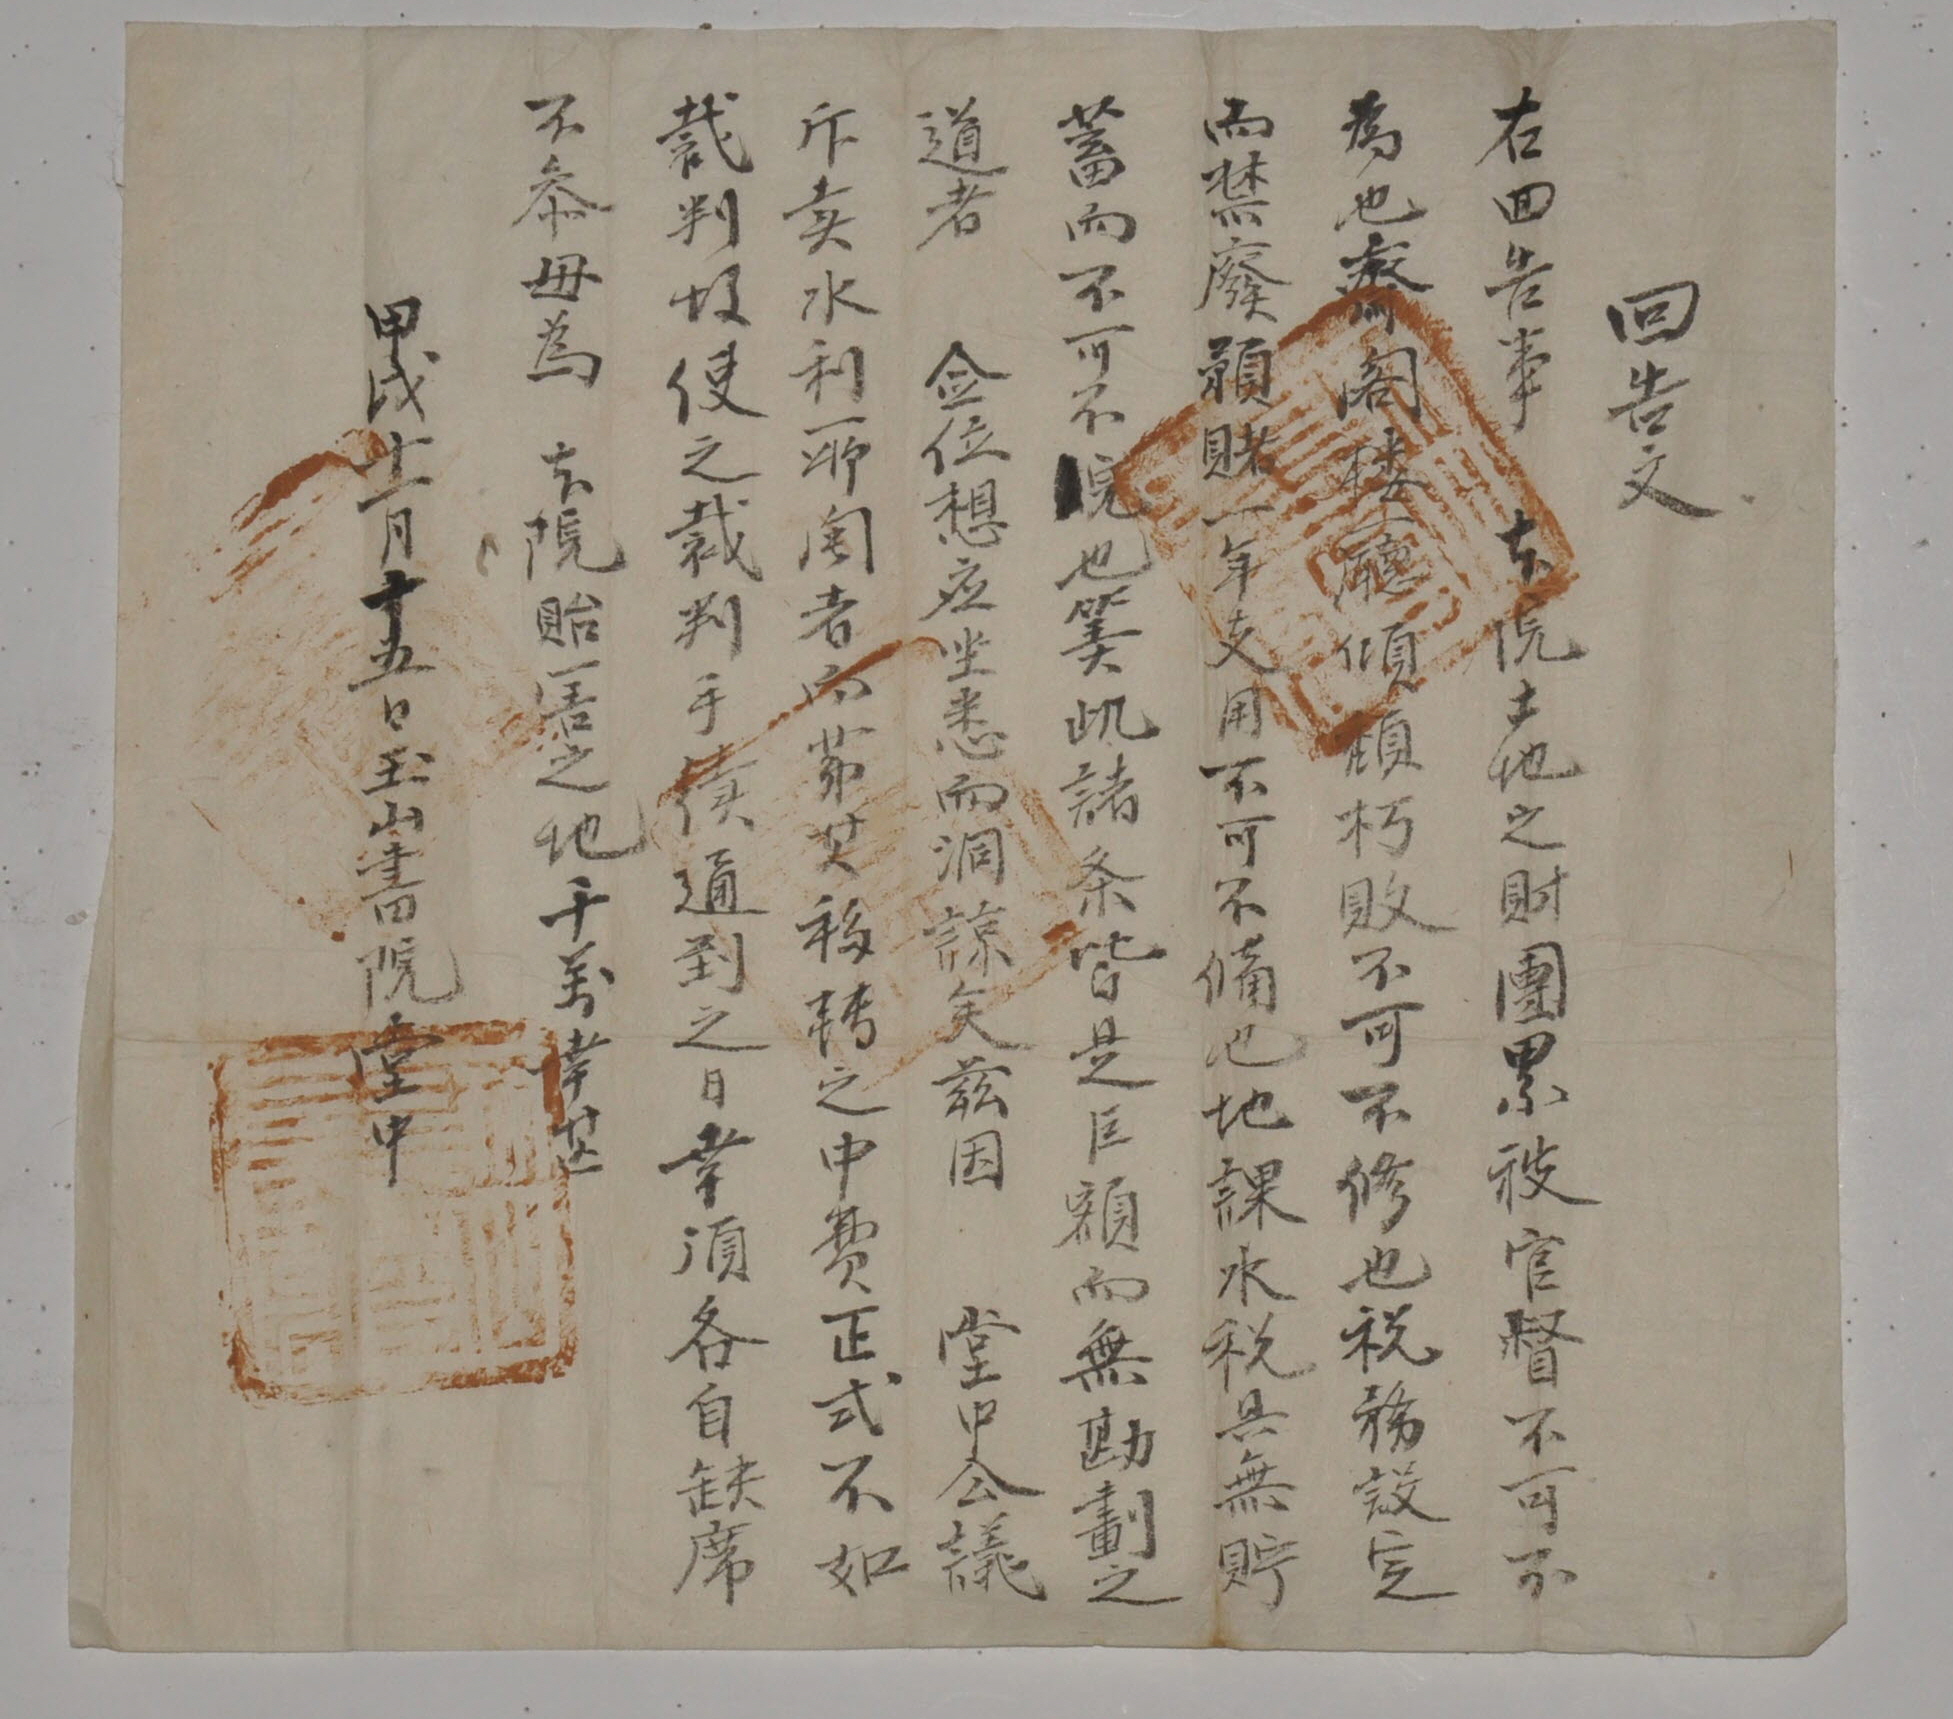 回告文
右回告事 本院土地之財團累被官督不可不
為也齋閣楼廳傾頹朽敗不可不修也税務設定
而禁廢 賭一年支用不可不備也地課水税具無貯
蓄而不可不 也筭此諸条皆是巨額而無勘劃之
道者 僉位想应坐悉而洞諒矣茲因 堂中公議
斥賣水利 者而 其移轉之申費正式不如
裁判故使之裁判手續通到之日幸須各自缺席
不叅毋為 本院貽害之地千萬幸甚
甲戌十一月十五日玉山書院堂中